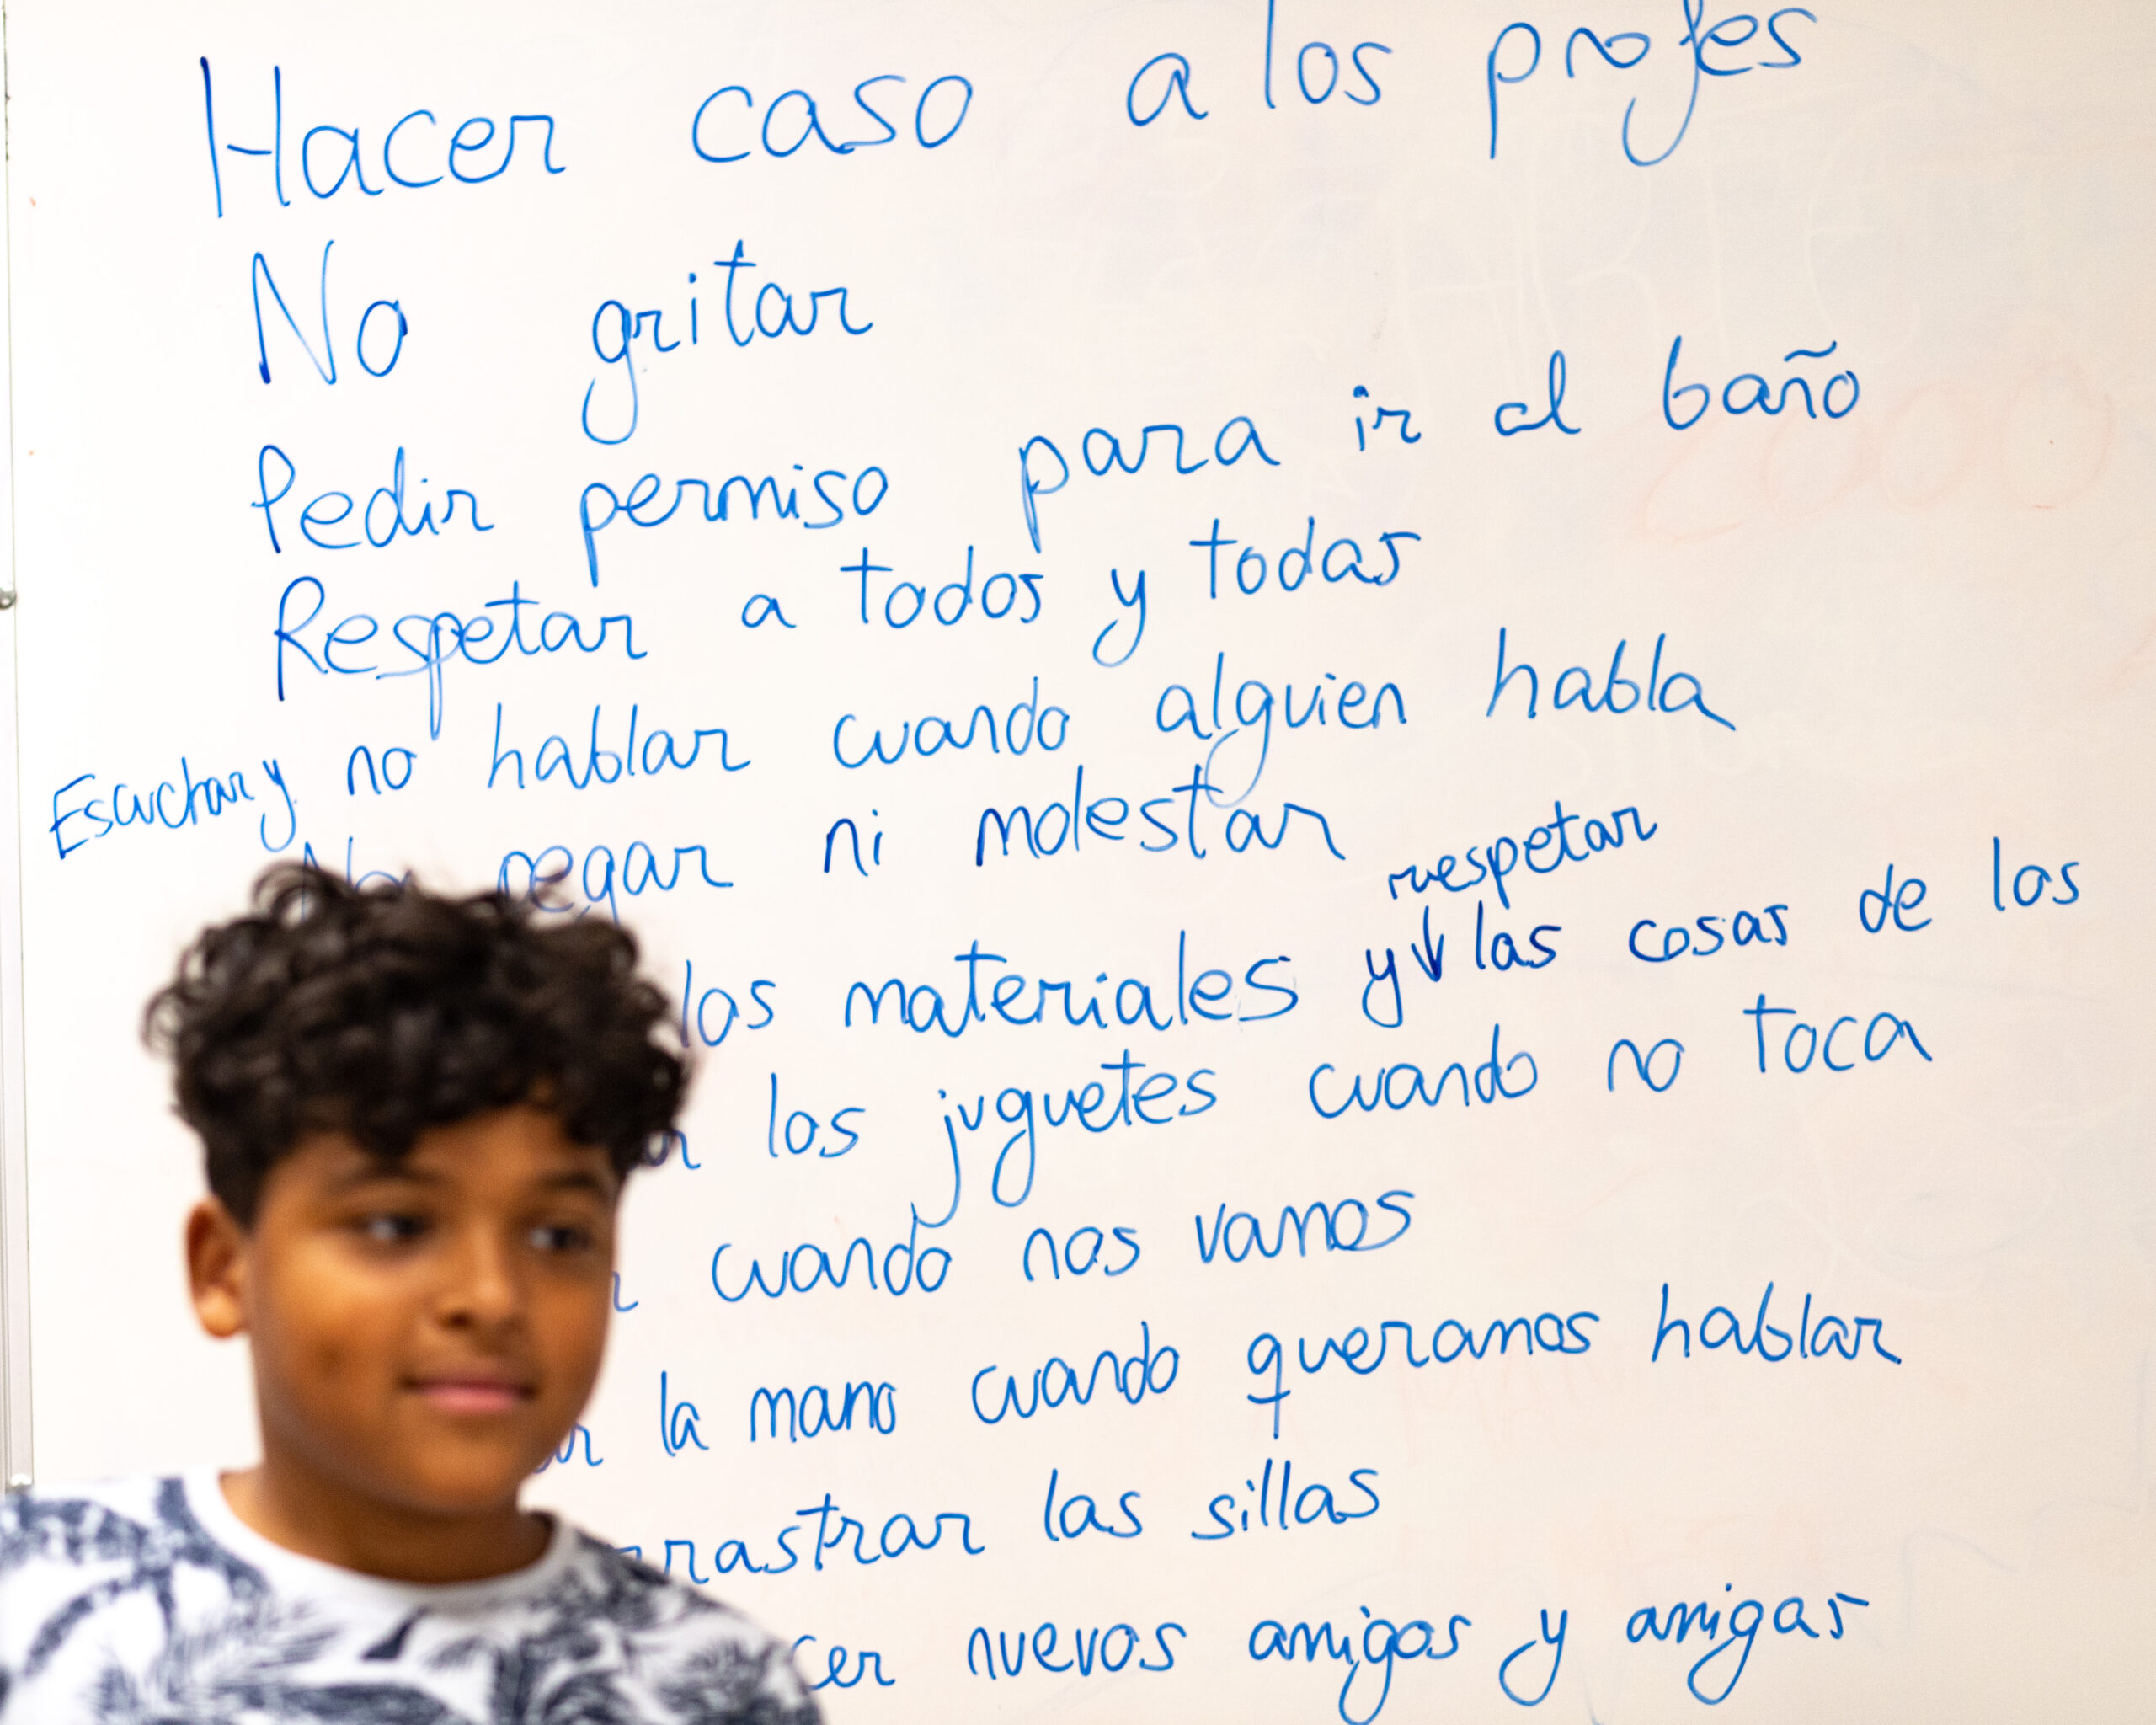 Hacer caso a los profes
No gritar
Pedir permiso para ir al baño
Respetar a todos y todas
Escuchar y no hablar cuando alguien habla
No pegar ni molestar
respetar
los materiales y las cosas de los
los juguetes cuando no toca
cuando nos vamos
la mano cuando queramos hablar
rrastrar las sillas
cer nuevos amigos y amigas